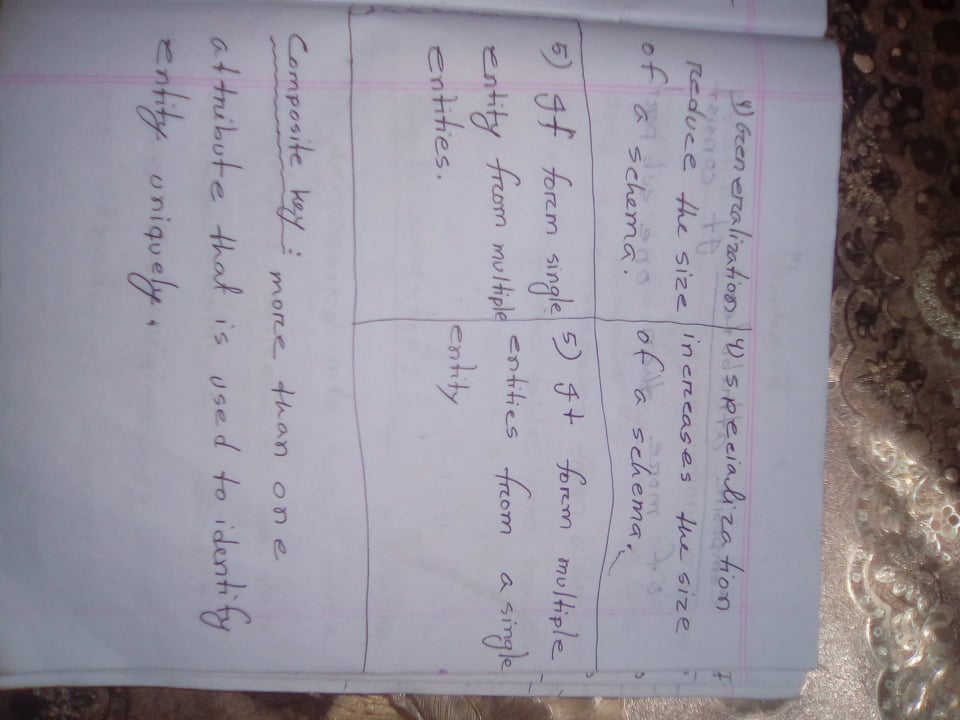 4) Generalization
reduce the size
of a schema.
4) specialization
increases the size
of a schema.
5) It form single
entity from multiple
entities.
5) It form multiple
entities from a single
entity
Composite key : more than one
attribute that is used to identify
entity uniquely.